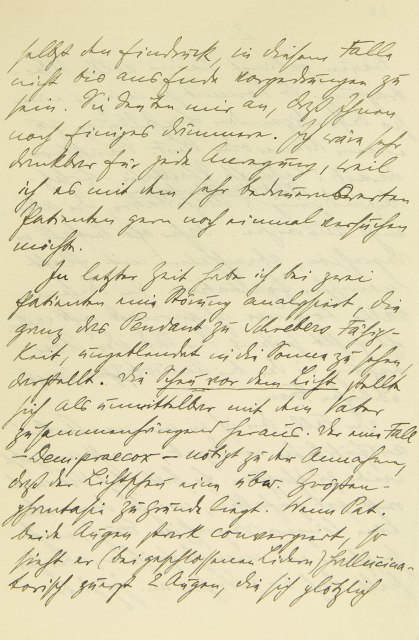 selbst den Eindruck, in diesem Falle
nicht bis ans Ende vorgedrungen zu
sein. Sie deuten mir an, daß Ihnen
noch Einiges dämmere. Ich wäre sehr
dankbar für jede Anregung, weil
ich es mit dem sehr bedauernswerten
Patienten gern noch einmal versuchen
möchte.
In letzter Zeit habe ich bei zwei
Patienten eine Störung analysiert, die
ganz das Pendant zu Schrebers Fähig-
keit, ungeblendet in die Sonne zu sehen,
darstellt. Die Scheu vor dem Licht stellte
sich als unmittelbar mit dem Vater
zusammenhängend heraus. Der eine Fall
– Dem. praecox – nötigt zu der Annahme,
daß der Lichtscheu eine Größen-
phantasie zugrunde liegt. Wenn Pat.
beide Augen stark convergiert, so
sieht er (bei geschlossenen Lidern) hallucina-
torisch zuerst 2 Augen, die sich plötzlich